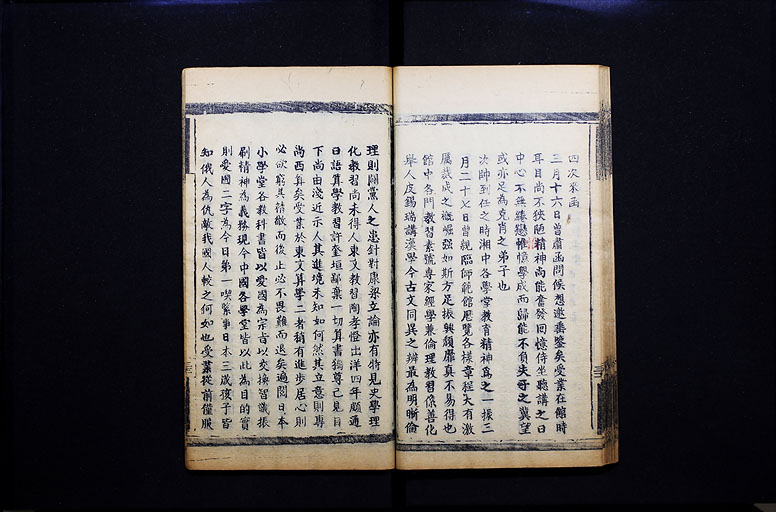 四次來函
三月十六日曾肅函問候想邀垂鑒矣受業在館時
耳目尚不狹陋精神尚能奮發回憶侍坐聽講之日
中心不無繾戀惟憶學成而歸能不負夫子之冀望
或亦足為克肖之弟子也
次帥到任之時湘中各學堂教育精神為之一振三
月二十七日曾親臨師範館歷覽各様章程大有激
厲裁成之概崛强如斯方足振興頽靡真不易得也
館中各門教習素號專家經學兼倫理教習係善化
舉人皮錫瑞講漢學今古文同異之辨最為明晰倫
理則關黨人之患針對康梁立論亦有特見史學理
化教習尚未得人東文教習陶孝憕出洋四年頗通
日語算學教習許奎垣鄙棄一切算書獨尊己見目
下尚由淺近示人其進境未知如何然其立意則專
尚西算矣受業於東文算學二者稍有進步居心則
必欲窮其精微而後止必不畏難而退矣遍閱日本
小學堂各教科書皆以愛國為宗旨以交換智識振
刷精神為義務現今中國各學堂皆以此為目的實
則愛國二字為今日第一喫緊事日本三歲孩子皆
知俄人為仇敵我國人較之何如也受業從前僅服